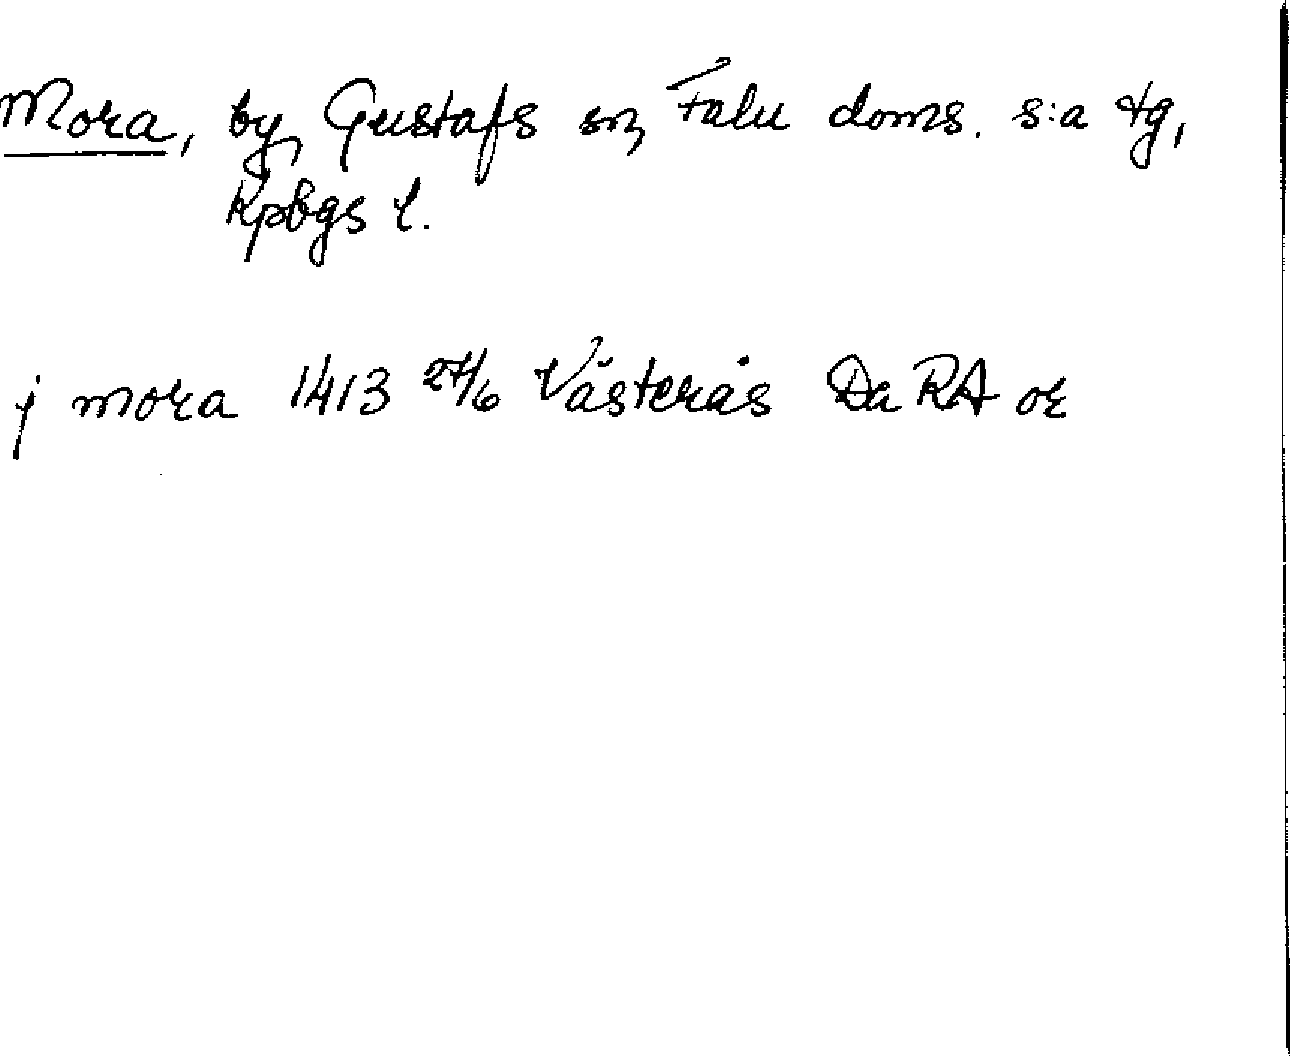 Mora, by, Gustafs sn, Falu doms. s:a tg,
Kpbgs l.
j mora 1413 27/6 Västerås Da RA or